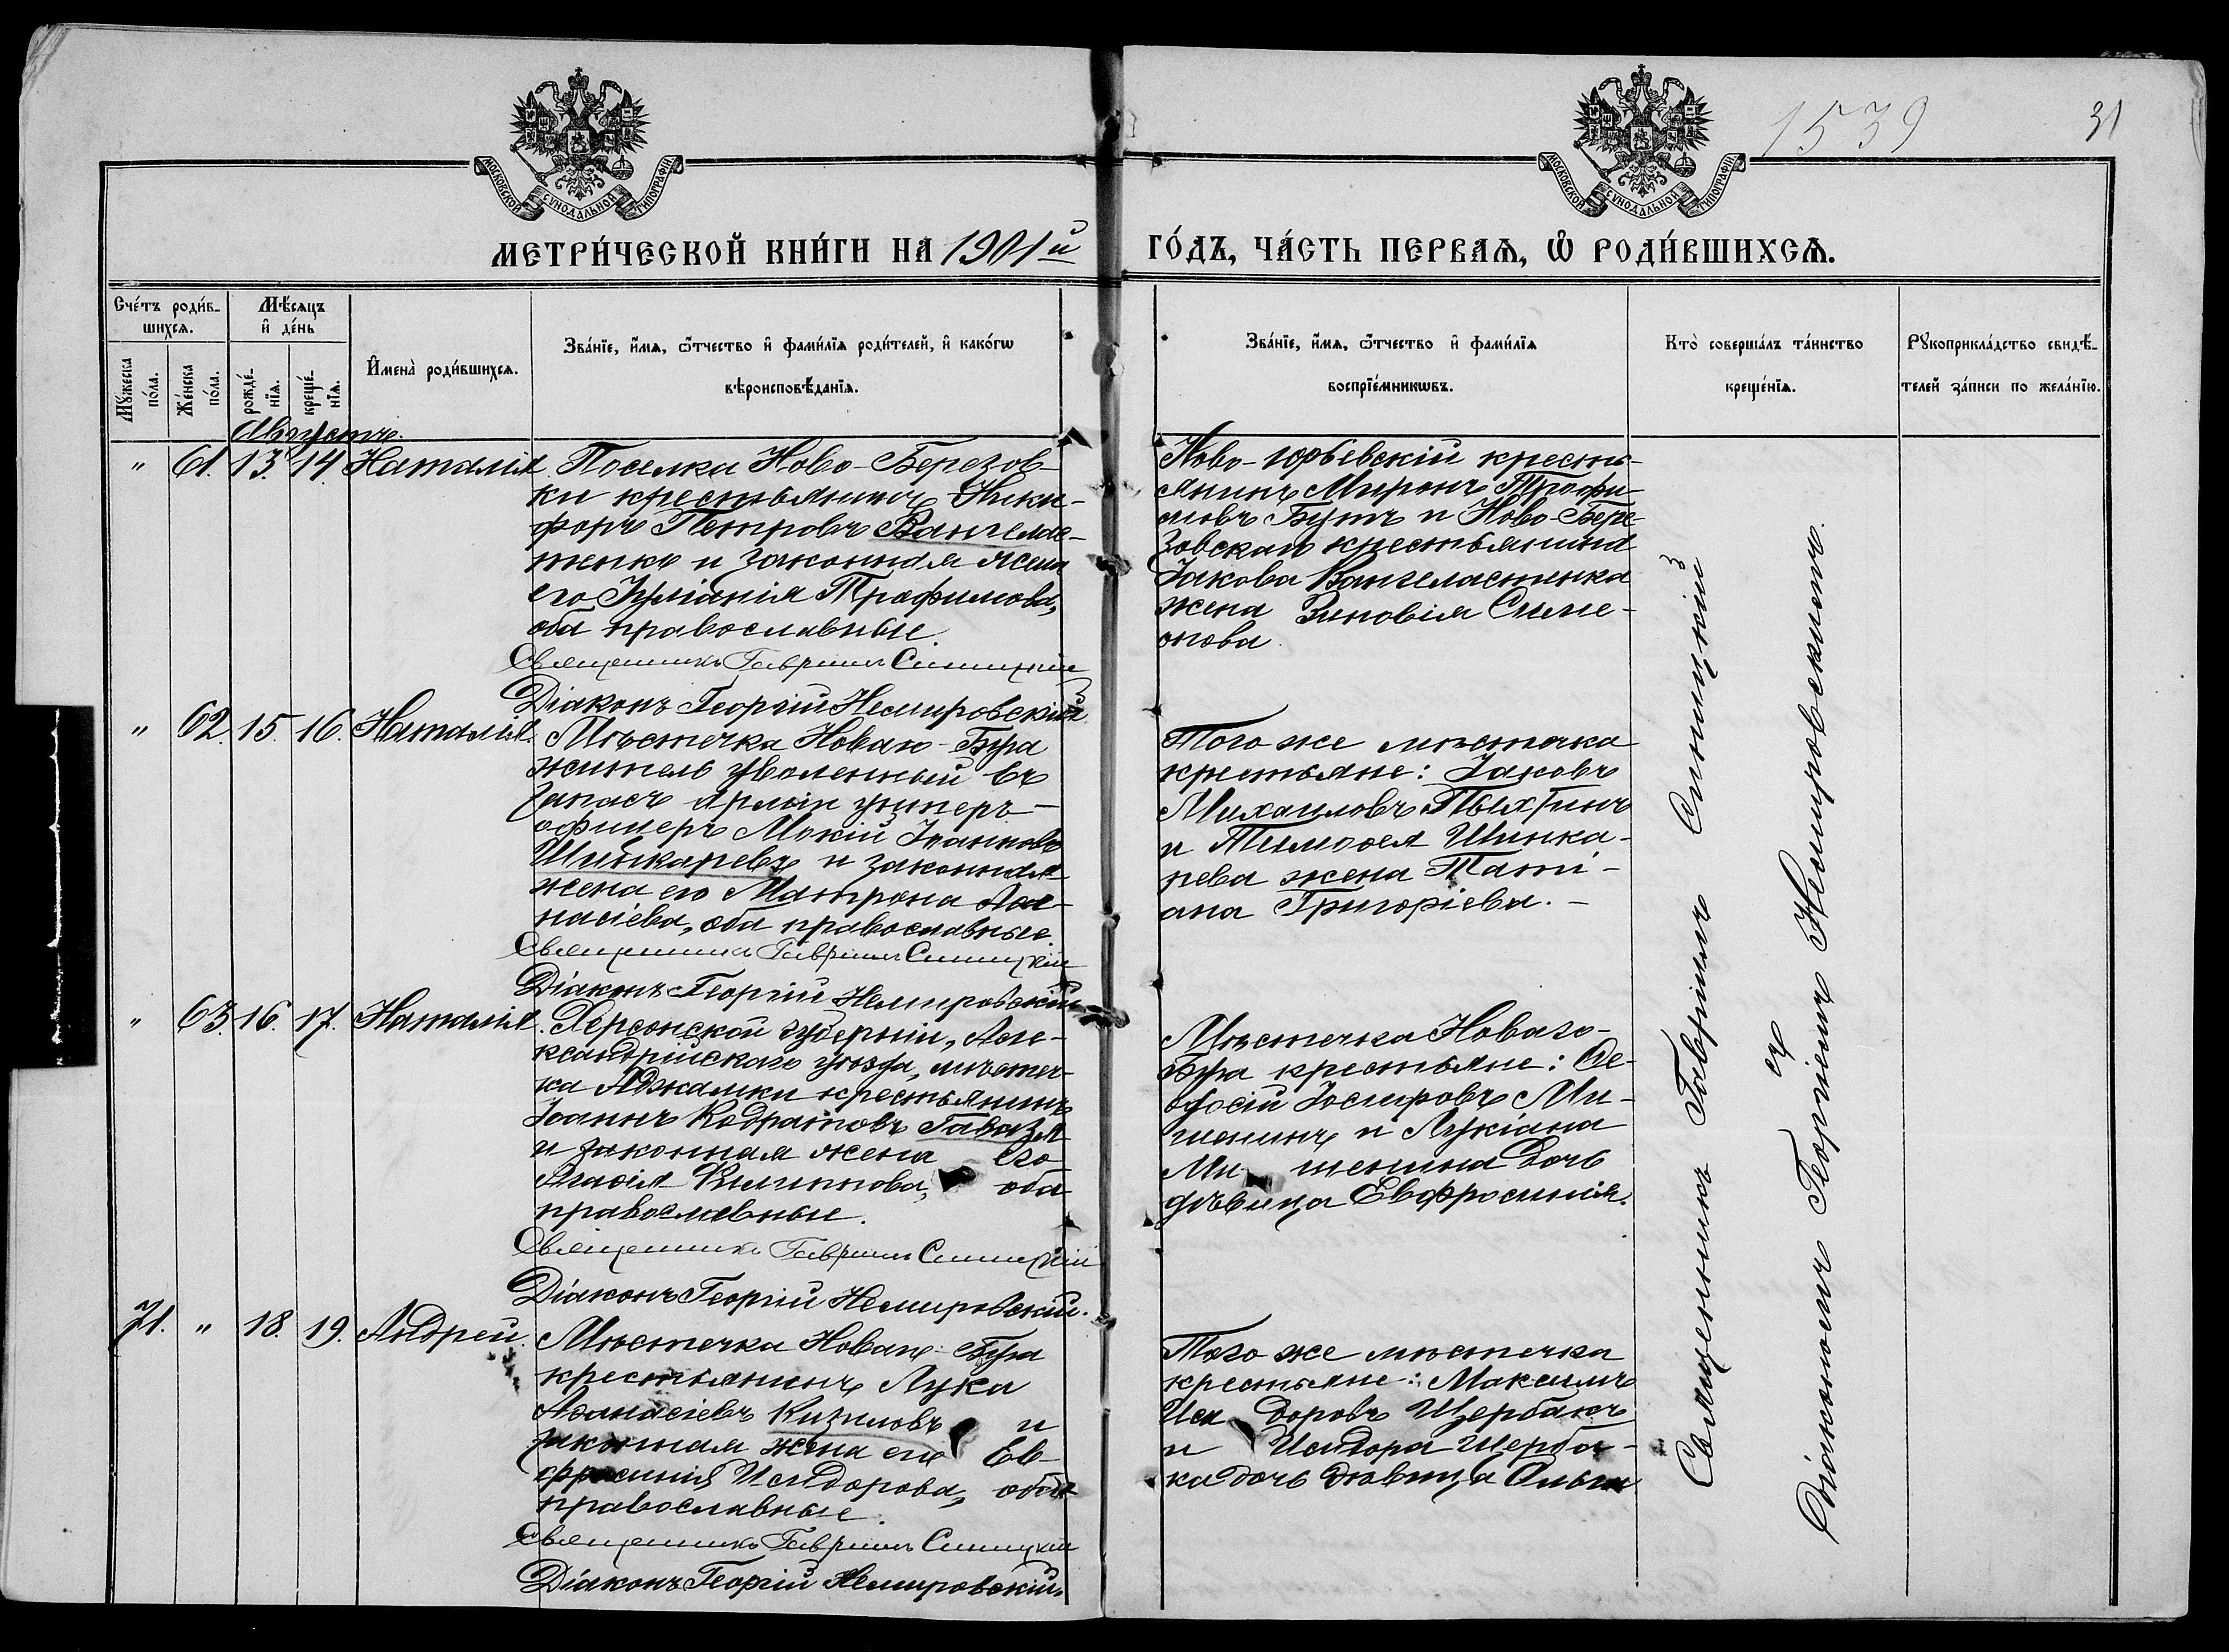 1539
31
МОСКОВСКОЙ СѴНОДАЛЬНОЙ ТИПОГРАФІИ
МОСКОВСКОЙ СѴНОДАЛЬНОЙ ТИПОГРАФІИ
МЕТРИ́ЧЕСКОЙ КНИ́ГИ НА 1901й
ГО́ДЪ, ЧА́СТЬ ПЕРВАѦ, Ѡ҆ РОДИ́ВШИХСѦ.
Сче́тъ роди́в-
шихсѧ.
Мꙋжеска
по́ла.
Же́нска
по́ла.
Мѣ́сѧцъ
и҆ де́нь
рожде́-
нїѧ.
креще́-
нїѧ.
И҆мена̀ роди́вшихсѧ.
Зва́нїе, и҆́мѧ, ѻ҆́тчество и҆ фами́лїѧ роди́телей, и҆ како́гѡ
вѣроисповѣ́данїѧ.
Зва́нїе, и҆́мѧ, ѻ҆́тчество и҆ фами́лїѧ
воспрїе́мникѡвъ.
Кто̀ соверша́лъ та́инство
креще́нїѧ.
Рꙋкоприкла́дство свидѣ́-
телей за́писи по жела́нїю.
Августъ.
" 61. 13. 14. Наталія
Поселка Ново-Березов-
ки крестьянинъ Ники-
форъ Петровъ Вангелас-
тенко и законная жена
его Іуліанія Трофимова,
оба православные
Священникъ Гавріилъ Синицкій
Діаконъ Георгій Немировскій
Ново-Юрьевскій кресть-
янинъ Миронъ Трофи-
мовъ Бутъ и Ново-Бере-
зовскаго крестьянина
Іакова Вангеластенка
жена Зиновія Симе-
онова.
" 62. 15. 16. Наталія.
Мѣстечка Новаго-Буга
житель уволенный въ
запасъ арміи унтеръ-
офицеръ Мокій Іоанновъ
Шинкаревъ и законная
жена его Матрона Аѳа-
насіева, оба православные.
Священникъ Гавріилъ Синицкій
Діаконъ Георгій Немировскій
Того же мѣстечка
крестьяне: Іаковъ
Михаиловъ
и Тимоѳея Шинка-
рева жена Таті-
ана Григоріева. -
" 63. 16. 17. Наталія.
Херсонской губерніи, Але-
ксандрійскаго уѣзда, мѣстеч-
ка Аджамки крестьянинъ
Іоаннъ Кодратовъ
и законная жена его
оба
православные.
Священникъ Гавріилъ Синицкій
Діаконъ Георгій Немировскій.
Мѣстечка Новаго-
Буга крестьяне: Ѳе-
одосій Іосифовъ Ми-
шенинъ и Лукіана
Ми шенина дочь
дѣвица Евфросинія.
71. " 18. 19. Андрей.
Мѣстечка Новаго-Буга
крестьянинъ Лука
Аѳанасіевъ Кизиловъ и
законная жена его Ев-
фросинія Исидорова, оба
православные.
Священникъ Гавріилъ Синицкій
Діаконъ Георгій Немировскій.
Того же мѣстечка
крестьяне: Максимъ
Иси доровъ Щербакъ
и Исидора Щерба-
ка дочь дѣвица Ольга
Священникъ Гавріилъ Синицкій
съ
Діакономъ Георгіемъ Немировскимъ.